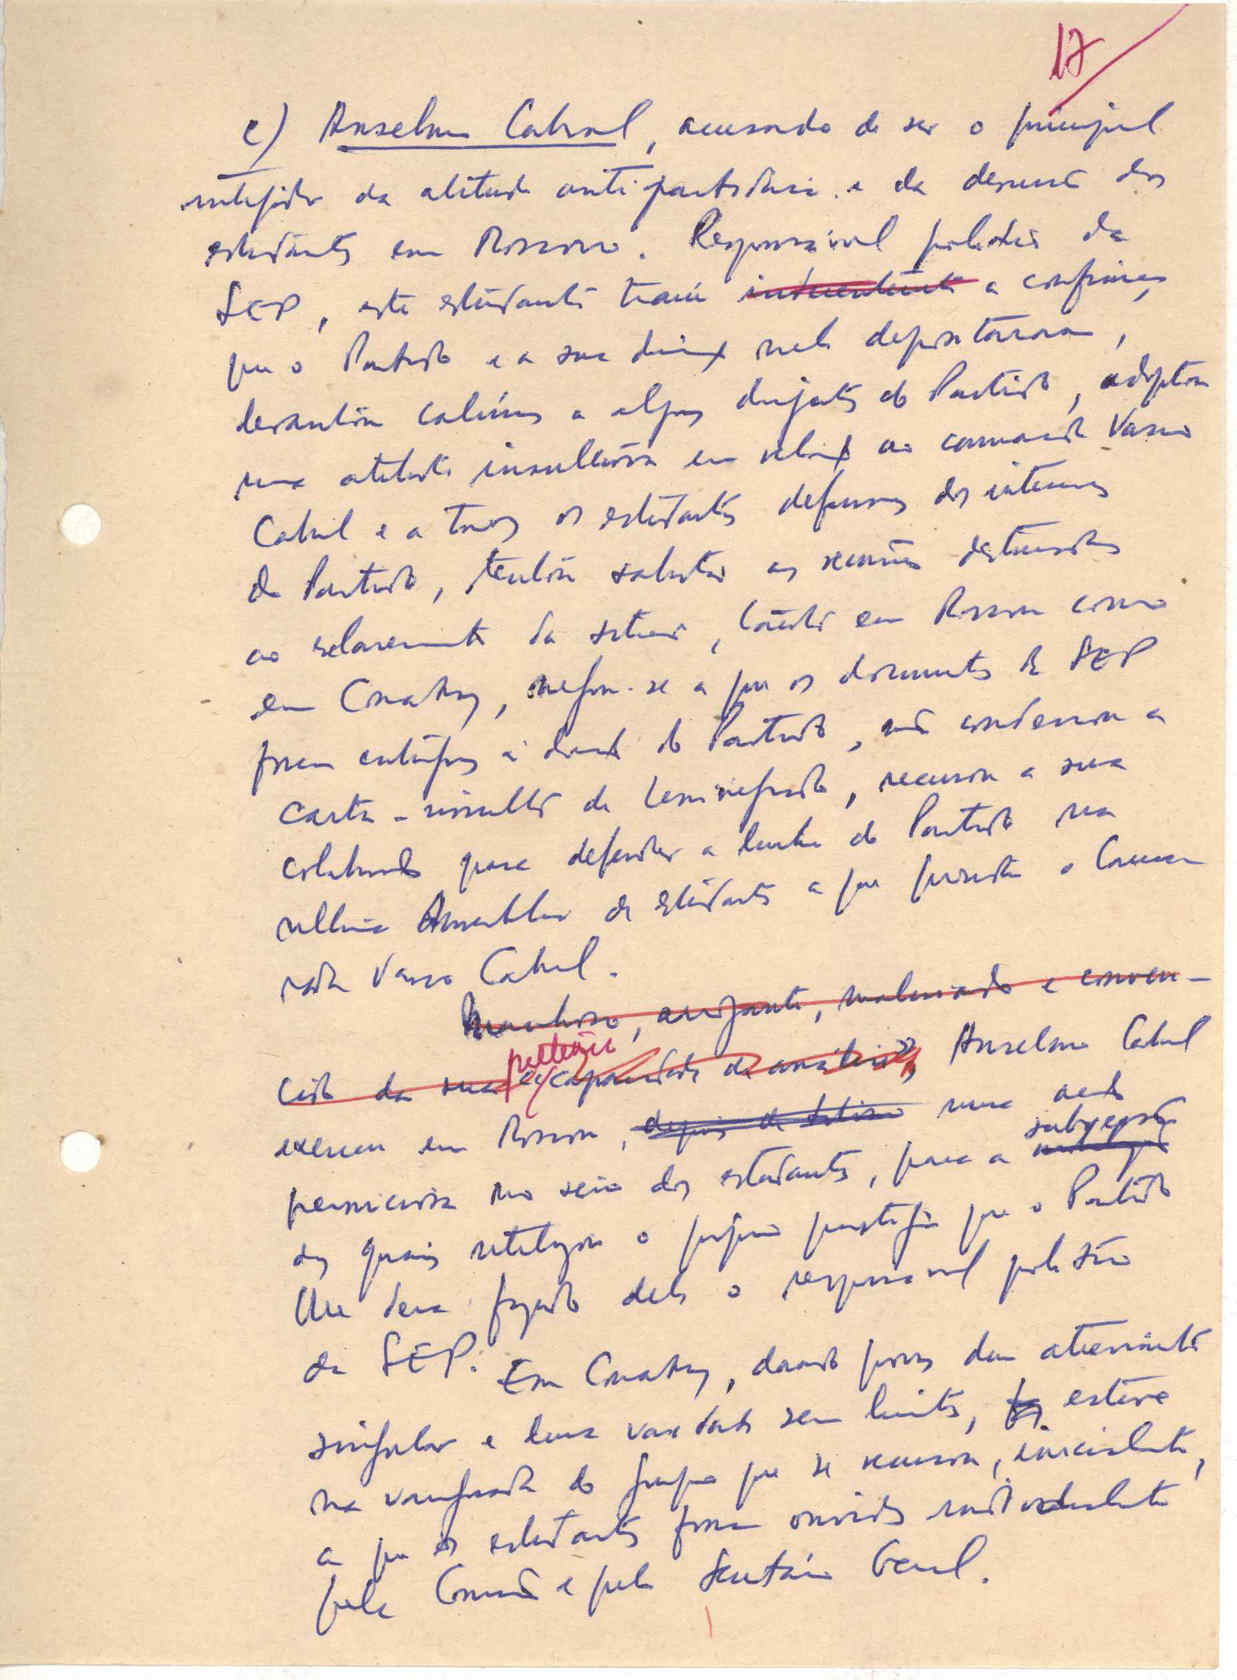 17
c) Anselmo Cabral, acusado de ser o principal
instigador da atitude antipartidária e da desunião dos
estudantes em Moscovo. Responsável da
SEP, este estudante traiu a confiança
que o Partido e a sua direcção nele depositaram,
levantou calúnias a alguns dirigentes do Partido, adoptou
uma atitude insultuosa em relação ao camarada Vasco
Cabral e a todos os estudantes defensores dos interesses
do Partido, tentou sabotar as reuniões destinadas
ao esclarecimento da situação, tanto em Moscovo como
em Conakry, negou-se a que os documentos da SEP
fossem entregues à direcção do Partido, não condenou a
carta-insulto de Leninegrado, recusou a sua
colaboração para defender a linha do Partido na
última Assembleia de estudantes a que presidiu o Cama-
rada Vasco Cabral.
arrogante, malcriado e conven-
cido da sua capacidade de análise, Anselmo Cabral
exerceu em Moscovo, uma acção
perniciosa no seio dos estudantes, para a
dos quais utilizou o próprio prestígio que o Partido
lhe dera fazendo dele o responsável político
da SEP. Em Conakry, dando provas dum atrevimento
singular e duma vaidade sem limites, esteve
na vanguarda do grupo que se recusou, inicialmente,
a que os estudantes fossem ouvidos individualmente
pela Comissão e pelo Secretário Geral.